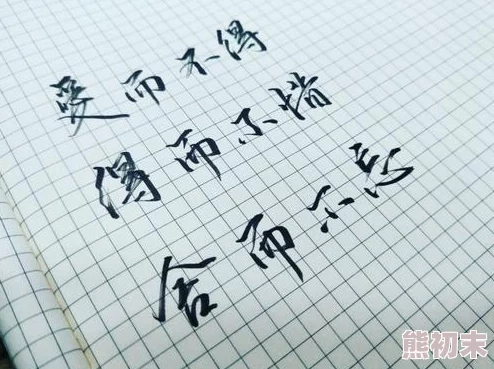 爱而不得
得而不惜
舍而不忘
熊初末